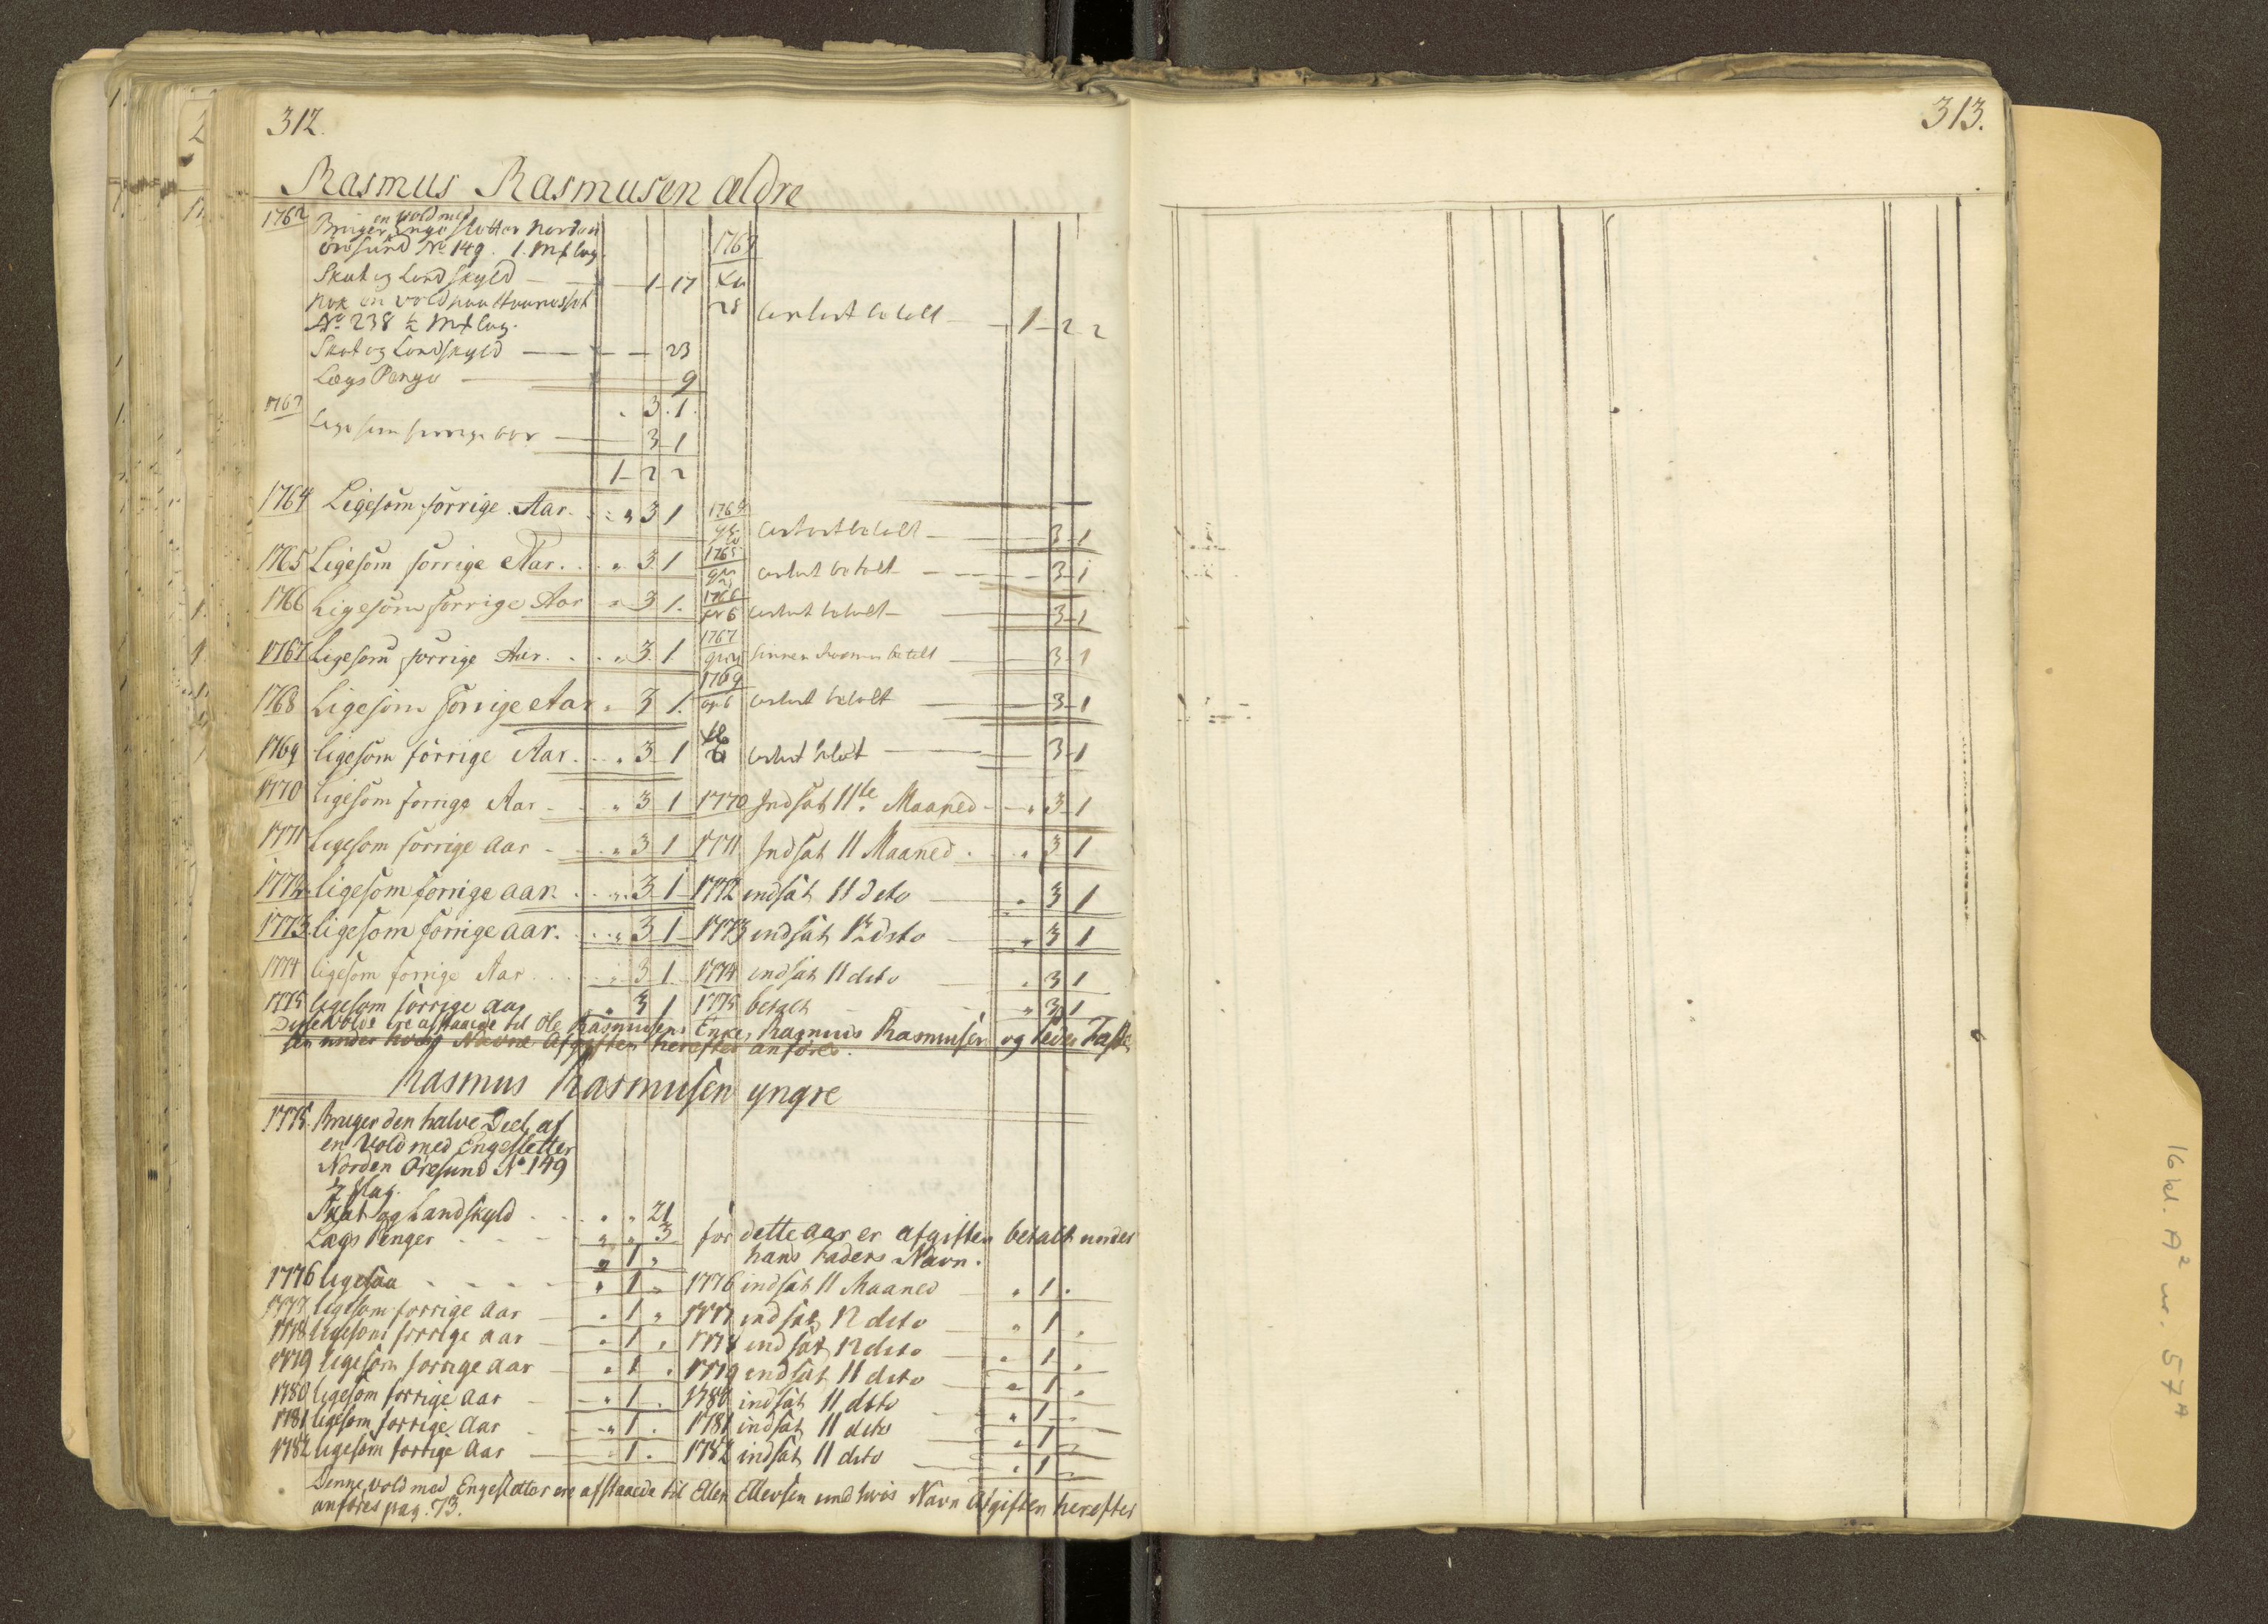 312.
313.
Rasmus Rasmusen ældre
1762
en Vold med
Bruger Enge Sletter Norden
öresund No 149. 1. Mk lag.
Skat og Landskyld — 1 - 17
nok en Vold paa
No 238 ½ Mk lag.
Skat og Landskyld — 23
Lægs Penge — 9
3. 1.
1763
Lige som forrige aar — 3 - 1
1 - 2 2
1763
28 betalt — 1 - 2 2
1764 Ligesom forrige Aar. 3 1 1764 betalt — 3 - 1
1765 Ligesom forrige Aar. . . 3 1 1765 betalt — 3 - 1
1766 Ligesom forrige Aar 3 1. 1766 betalt — 3 - 1
1767 Ligesom forrige Aar. . . 3 1. 1767 betalt — 3 - 1
1768 Ligesom forrige Aar 3 1. 1769 betalt — 3 - 1
1769 ligesom forrige Aar. . . 3 1 — 3 - 1
1770 ligesom forrige Aar - . „ 3 1 1770 Indsat 11te Maaned - „ 3 - 1
1771 Ligesom forrige aar - . „ 3 1 1771 Indsat 11 Maaned . . „ 3 1
1772 ligesom forrige aar. . . „ 3 1 1772 indsat 11 deto — „ 3 1
1773 ligesom forrige aar. . . „ 3 1 1773 indsat 12 deto — „ 3 1
1774 ligesom forrige Aar . . . 3 1 1774 indsat 11 deto — „ 3 1
1775 ligesom forrige aar „ 3 1 1775 betalt — „ 3 1
Disse Volde ere afstaaede til Ole Rasmusens Enke, Rasmus Rasmusen og Peder
sen under hvis Navne Afgiften herefter anföres.
Rasmus Rasmusen yngre
1775. Bruger den halve Deel af
en Vold med Engesletter
Norden Öresund No 149
½ Mlag.
Skat og Landskyld . . . „ „ 21
Lægs Penger . . . „ „ 3
„ 1 „
for dette aar er afgiften betalt under
hans Faders Navn.
1776 ligesaa - - - - „ 1 „ 1776 indsat 11 Maaned — „ 1 .
1777 ligesom forrige aar — „ 1 „ 1777 indsat 12 deto — „ 1 „
1778 ligesom forrige aar — „ 1 „ 1778 indsat 12 deto — „ 1 „
1779 ligesom forrige aar — „ 1 . 1779 indsat 11 deto — „ 1 „
1780 ligesom forrige aar — „ 1 . 1780 indsat 11 deto — „ 1 -
1781 ligesom forrige aar — „ 1 . 1781 indsat 11 deto — „ 1 -
1782 ligesom forrige aar — „ 1 . 1782 indsat 11 deto — „ 1 -
Denne Vold med Engesletter ere afstaaede til Ellen Ellevsen und hvis Navn Afgiften herefter
anföres pag. 73.
16 kl. A² nr. 57 A